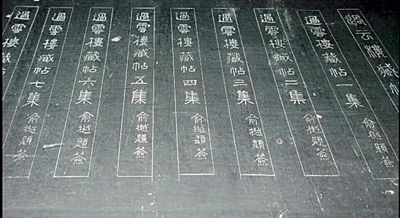 過云樓藏帖
過雲樓藏帖一集 俞樾題簽
過雲樓藏帖二集 俞樾題簽
過雲樓藏帖三集 俞樾題簽
過雲樓藏帖四集 俞樾題簽
過雲樓藏帖五集 俞樾題簽
過雲樓藏帖六集 俞樾題簽
過雲樓藏帖七集 俞樾題簽
過雲